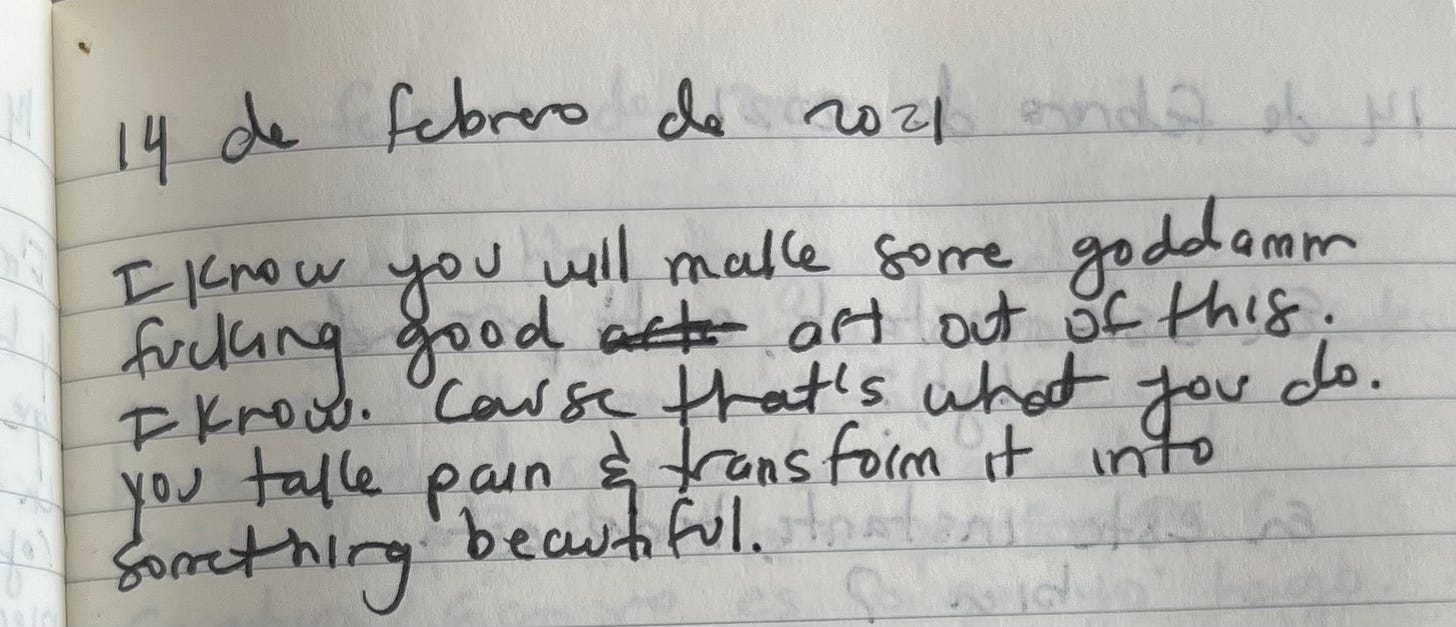 14 de febrero de 2021
I know you will make some goddamm
fucking good art out of this.
I know. Cause that's what you do.
you take pain & transform it into
something beautiful.